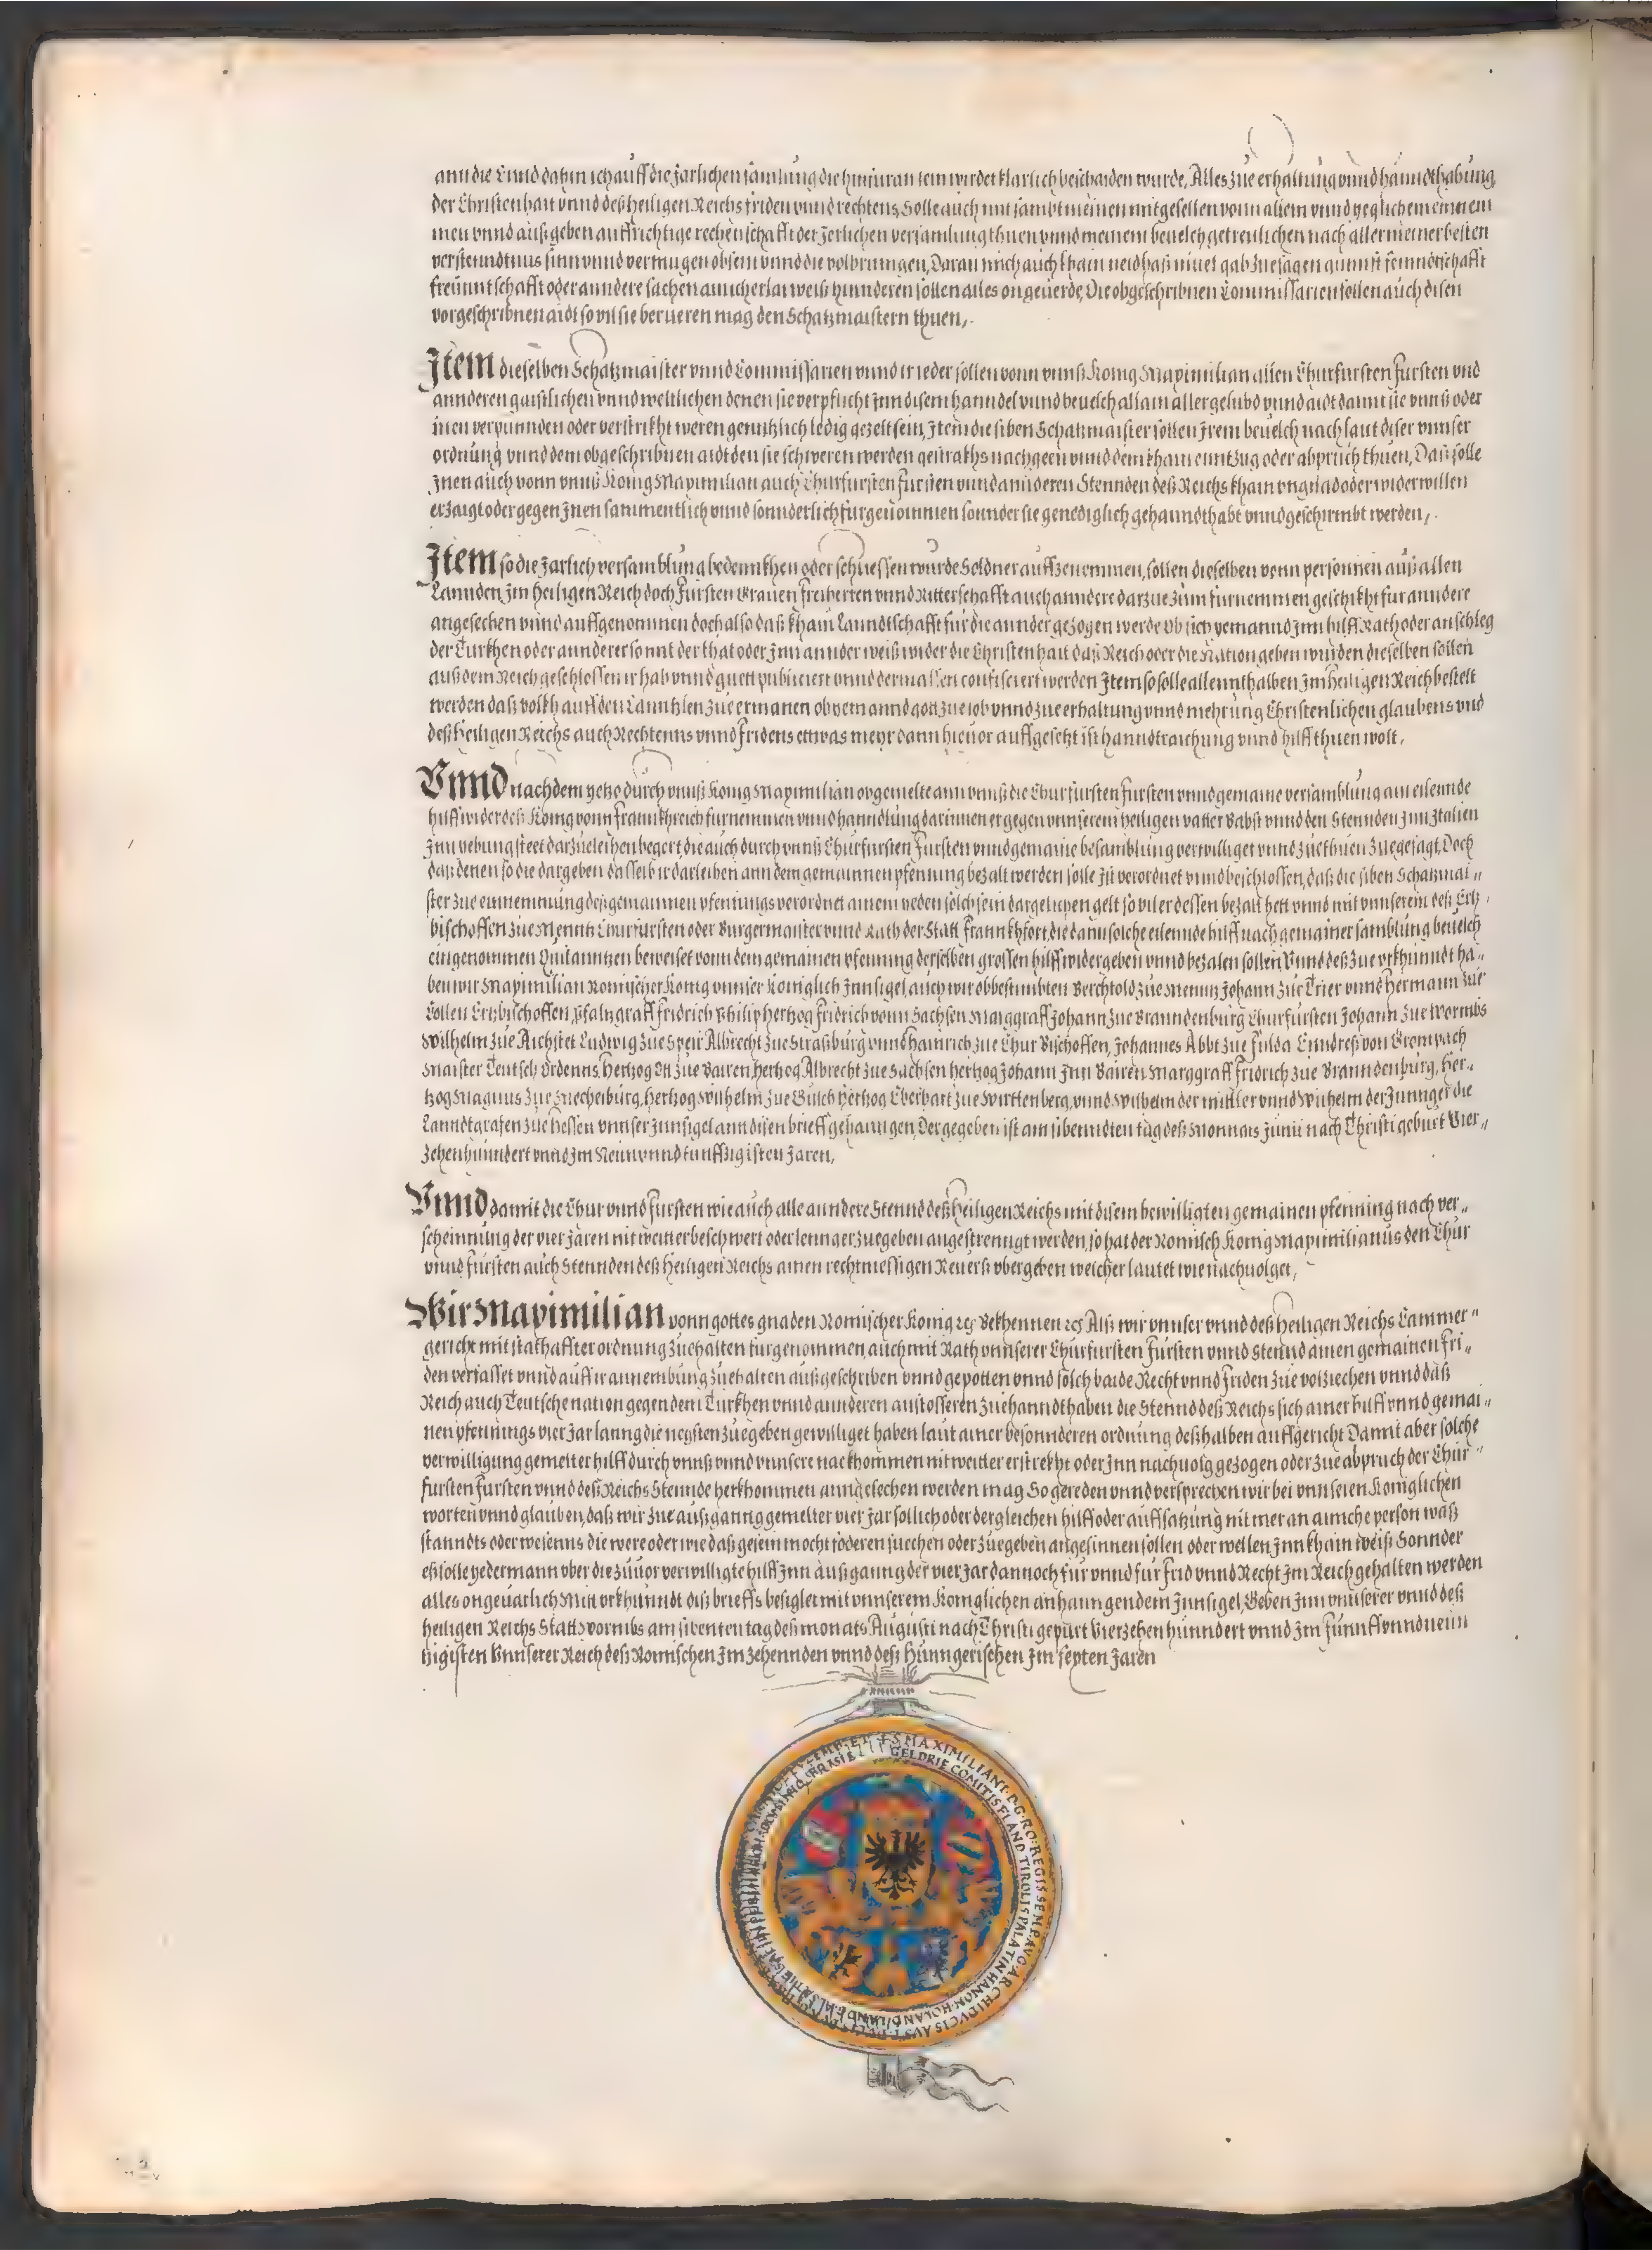 ann die Ennd dahin ich auff die Jarlichen samlung die hinfuran sein wirdet klarlich beschaiden wurde, Alles zue erhaltung vnnd hanndthabung
der Christenhait vnnd deß heiligen Reichs friden vnnd rechtens, Solle auch mit sambt meinen mitgesellen vonn allem vnnd yeglichem einnem
men vnnd außgeben auffrichtige rechenschafft der Jerlichen versamlung thuen vnnd meinem beuelch getreulichen nach aller meiner besten
verstenndtnus sinn vnnd vermugen obsein vnnd die volbringen, Daran mich auch khain neid haß miet gab zuesagen gunnst feinndtschafft
freünntschafft oder anndere sachen ainicherlai weiß hinnderen sollen alles ongeuerde, Die obgeschribnen Commissarien sollen auch disen
vorgeschribnen aidt so vil sie berueren mag den Schatzmaistern thuen,
Item dieselben Schatzmaister vnnd Commissarien vnnd ir ieder sollen vonn vnnß Konig Maximilian allen Churfursten Fursten vnd
annderen gaistlichen vnnd weltlichen denen sie verpflicht Inn disem hanndel vnnd beuelch allain aller gelubd vnnd aidt damit sie vnnß oder
inen verpunnden oder verstrikht weren genntzlich ledig gezelt sein, Item die siben Schatzmaister sollen Irem beuelch nach laut diser vnnser
ordnung vnnd dem obgeschribnen aidt den sie schweren werden gestrakhs nachgeen vnnd dem khain enntzug oder abpruch thuen, Daß solle
Inen auch vonn vnnß Konig Maximilian auch Churfursten Fursten vnnd annderen Stennden deß Reichs khain vngnad oder widerwillen
erzaigt oder gegen Inen sammentlich vnnd sonnderlich furgenommen sonnder sie genediglich gehanndthabt vnnd geschirmbt werden,
Item so die Jarlich versamblung bedennkhen oder schliessen wurde Soldner auffzenemmen, sollen dieselben vonn personnen auß allen
Lannden Im heiligen Reich doch Fursten Grauen freiherren vnnd Ritterschafft auch anndere darzue zum furnemmen geschikht fur anndere
angesechen vnnd auffgenommen doch also daß khain Lanndtschafft fur die annder gezogen werde Ob sich yemannd Inn hilff Rath oder anschleg
der Turkhen oder annderer so mit der that oder Inn annder weiß wider die Christenhait daß Reich oder die Nation geben wurden dieselben sollen
auß dem Reich geschlossen ir hab vnnd guett publiciert vnnd dermassen confisciert werden Item so solle allennthalben Im heiligen Reich bestelt
werden daß volkh auff den Canntzlen zue ermanen ob yemannd gott zue lob vnnd zue erhaltung vnnd mehrung Christenlichen glaubens vnd
deß heiligen Reichs auch Rechtenns vnnd Fridens ettwas mehr dann hieuor auffgesetzt ist hanndtraichung vnnd hilff thuen wolt,
Vnnd nachdem yetzo durch vnnß Konig Maximilian obgemelte ann vnnß die Churfursten Fursten vnnd gemaine versamblung ain eilennde
hilff wider deß Konig vonn Frannkhreich furnemmen vnnd hanndlung darinnen er gegen vnnserem heiligen vatter Babst vnnd den Stennden Inn Italien
Inn vebung steet darzueleihen begert, die auch durch vnnß Churfursten Fursten vnnd gemaine besamblung verwilliget vnnd zue thuen zuegesagt, Doch
daß denen so die dargeben dasselb ir darleihen ann dem gemainnen pfenning bezalt werden solle Ist verordnet vnnd beschlossen, daß die siben Schatzmai„
ster zue einnemmung deß gemainnen pfennings verordnet ainem yeden solch sein dargelichen gelt so vil er dessen bezalt hett vnnd mit vnnserem deß Ertz„
bischoffen zue Menntz Churfursten oder Burgermaister vnnd Rath der Statt Frannkhfort, die dann solche eilennde hilff nach gemainer samblung beuelch
eingenommen Quitanntzen beweiset vonn dem gemainen pfenning derselben grossen hilff widergeben vnnd bezalen sollen, Vnnd deß zue vrkhunndt ha„
ben wir Maximilian Romischer Konig vnnser Koniglich Innsigel, auch wir obbestimbten Berchtold zue Menntz Johann zue Trier vnnd Hermann zue
Collen Ertzbischoffen, Pfaltzgraff Fridrich Philip hertzog Fridrich vonn Sachsen Marggraff Johann zue Branndenburg Churfursten Johann zue Wormbs
Wilhelm zue Aichstet Ludwig zue Speir Albrecht zue Straßburg vnnd Hainrich zue Chur Bischoffen, Johannes Abbt zue Fulda Enndreß von Grompach
Maister Teutsch Ordenns, Hertzog Ott zue Bairen, hertzog Albrecht zue Sachsen hertzog Johann Inn Bairen Marggraff Fridrich zue Branndenburg, Her„
tzog Magnus zue Mechelburg, hertzog Wilhelm zue Gulch hertzog Eberhart zue Wirttenberg, vnnd Wilhelm der mittler vnnd Wilhelm der Junnger die
Lanndtgrafen zue Hessen vnnser Innsigel ann disen brieff gehanngen, Der gegeben ist am sibenndten tag deß Monnats Junii nach Christi geburt Vier„
zehenhunndert vnnd Im Neun vnnd funffzigisten Jaren,
Vnnd damit die Chur vnnd Fursten wie auch alle anndere Stennd deß heiligen Reichs mit disem bewilligten gemainen pfenning nach ver„
scheinnung der vier Jaren nit weitter beschwert oder lennger zuegeben angestrenngt werden, so hat der Romisch Konig Maximilianus den Chur
vnnd Fursten auch Stennden deß heiligen Reichs ainen rechtmessigen Reuerß vbergeben welcher lautet wie nachuolget,
Wir Maximilian vonn gottes gnaden Romischer Konig ꝛc Bekhennen ꝛc Alß wir vnnser vnnd deß heiligen Reichs Cammer„
gericht mit stathaffter ordnung zuehalten furgenommen, auch mit Rath vnnserer Churfursten Fursten vnnd Stennd ainen gemainen Fri„
den verfasset vnnd auff ir annembung zuehalten außgeschriben vnnd gepotten vnnd solch baide Recht vnnd Friden zue volziechen vnnd daß
Reich auch Teutsche nation gegen dem Turkhen vnnd annderen anstosseren zuehanndthaben die Stennd deß Reichs sich ainer hilff vnnd gemai„
nen pfennings vier Jar lanng die negsten zuegeben gewilliget haben laut ainer besonnderen ordnung deßhalben auffgericht Damit aber solche
verwilligung gemelter hilff durch vnnß vnnd vnnsere nackhommen nit weitter erstrekht oder Inn nachuolg gezogen oder zue abpruch der Chur„
fursten Fursten vnnd deß Reichs Stennde herkhommen anngesechen werden mag So gereden vnnd versprechen wir bei vnnseren Koniglichen
worten vnnd glauben, daß wir zue außganng gemelter vier Jar sollich oder dergleichen hilff oder auffsatzung nit mer an ainiche person waß
stanndts oder wesenns die were oder wie daß gesein mocht foderen suechen oder zuegeben angesinnen sollen oder wellen Inn khain weiß Sonnder
eß solle yedermann vber die zuuor verwilligte hilff Inn außganng der vier Jar dannoch fur vnnd fur Frid vnnd Recht Im Reich gehalten werden
alles ongeuarlich Mitt vrkhunndt diß brieffs besiglet mit vnnserem Koniglichen anhanngendem Innsigel, Geben Inn vnnserer vnnd deß
heiligen Reichs Statt Wormbs am sibenten tag deß monats Augusti nach Christi gepurt Vierzehen hunndert vnnd Im funnff vnnd neün
tzigisten Vnnserer Reich deß Romischen Im zehennden vnnd deß Hunngerischen Im sexten Jaren
S MAXIMILIANI D G RO REGIS SEMP AVG ARCHIDVCIS AVST
GELDRIE COMITIS FLAND TIROLIS PALATIN HANON HOLAND